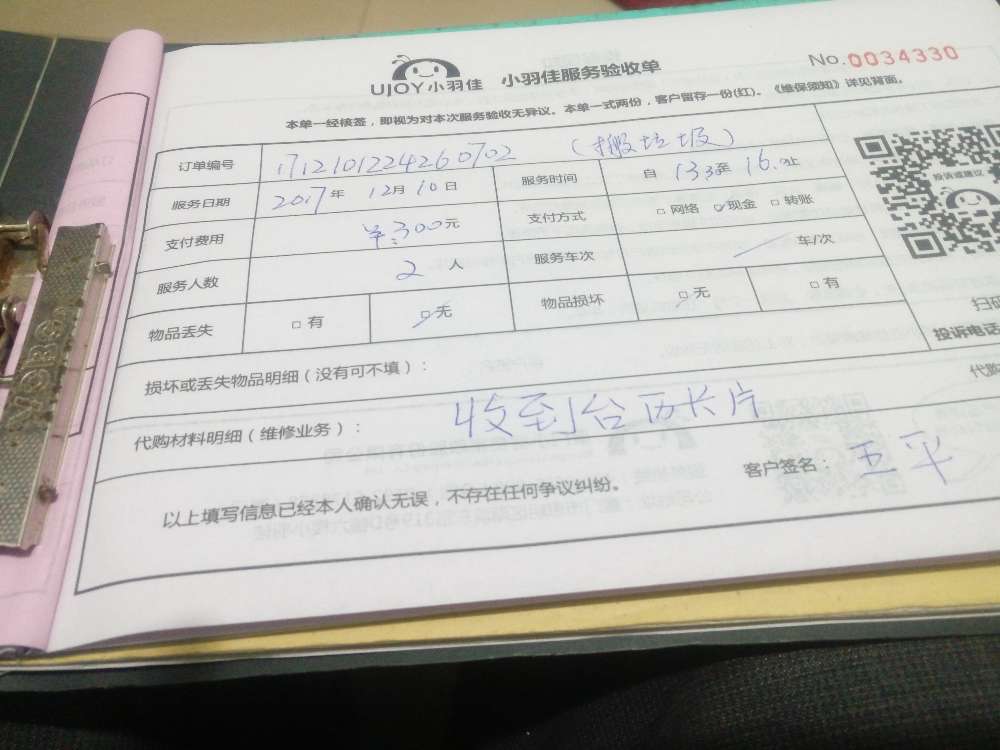 UJOY小羽佳 小羽佳服务验收单 No.0034330
本单一经核签，即视为对本次服务验收无异议。本单一式两份，客户留存一份(红)。《维保须知》详见背面。
订单编号 1712101224260702 (搬垃圾)
服务日期 2017年12月10日 服务时间 自 133至16.0止
支付费用 ¥:300元 支付方式 □网络 ☑现金 □转账
服务人数 2人 服务车次 车/次
物品丢失 □有 ☑无 物品损坏 ☑无 □有
投诉或建议
扫码
投诉电话
损坏或丢失物品明细（没有可不填）：
代购材料明细（维修业务）： 代购
收到1台历长片
以上填写信息已经本人确认无误，不存在任何争议纠纷。 客户签名： 王平